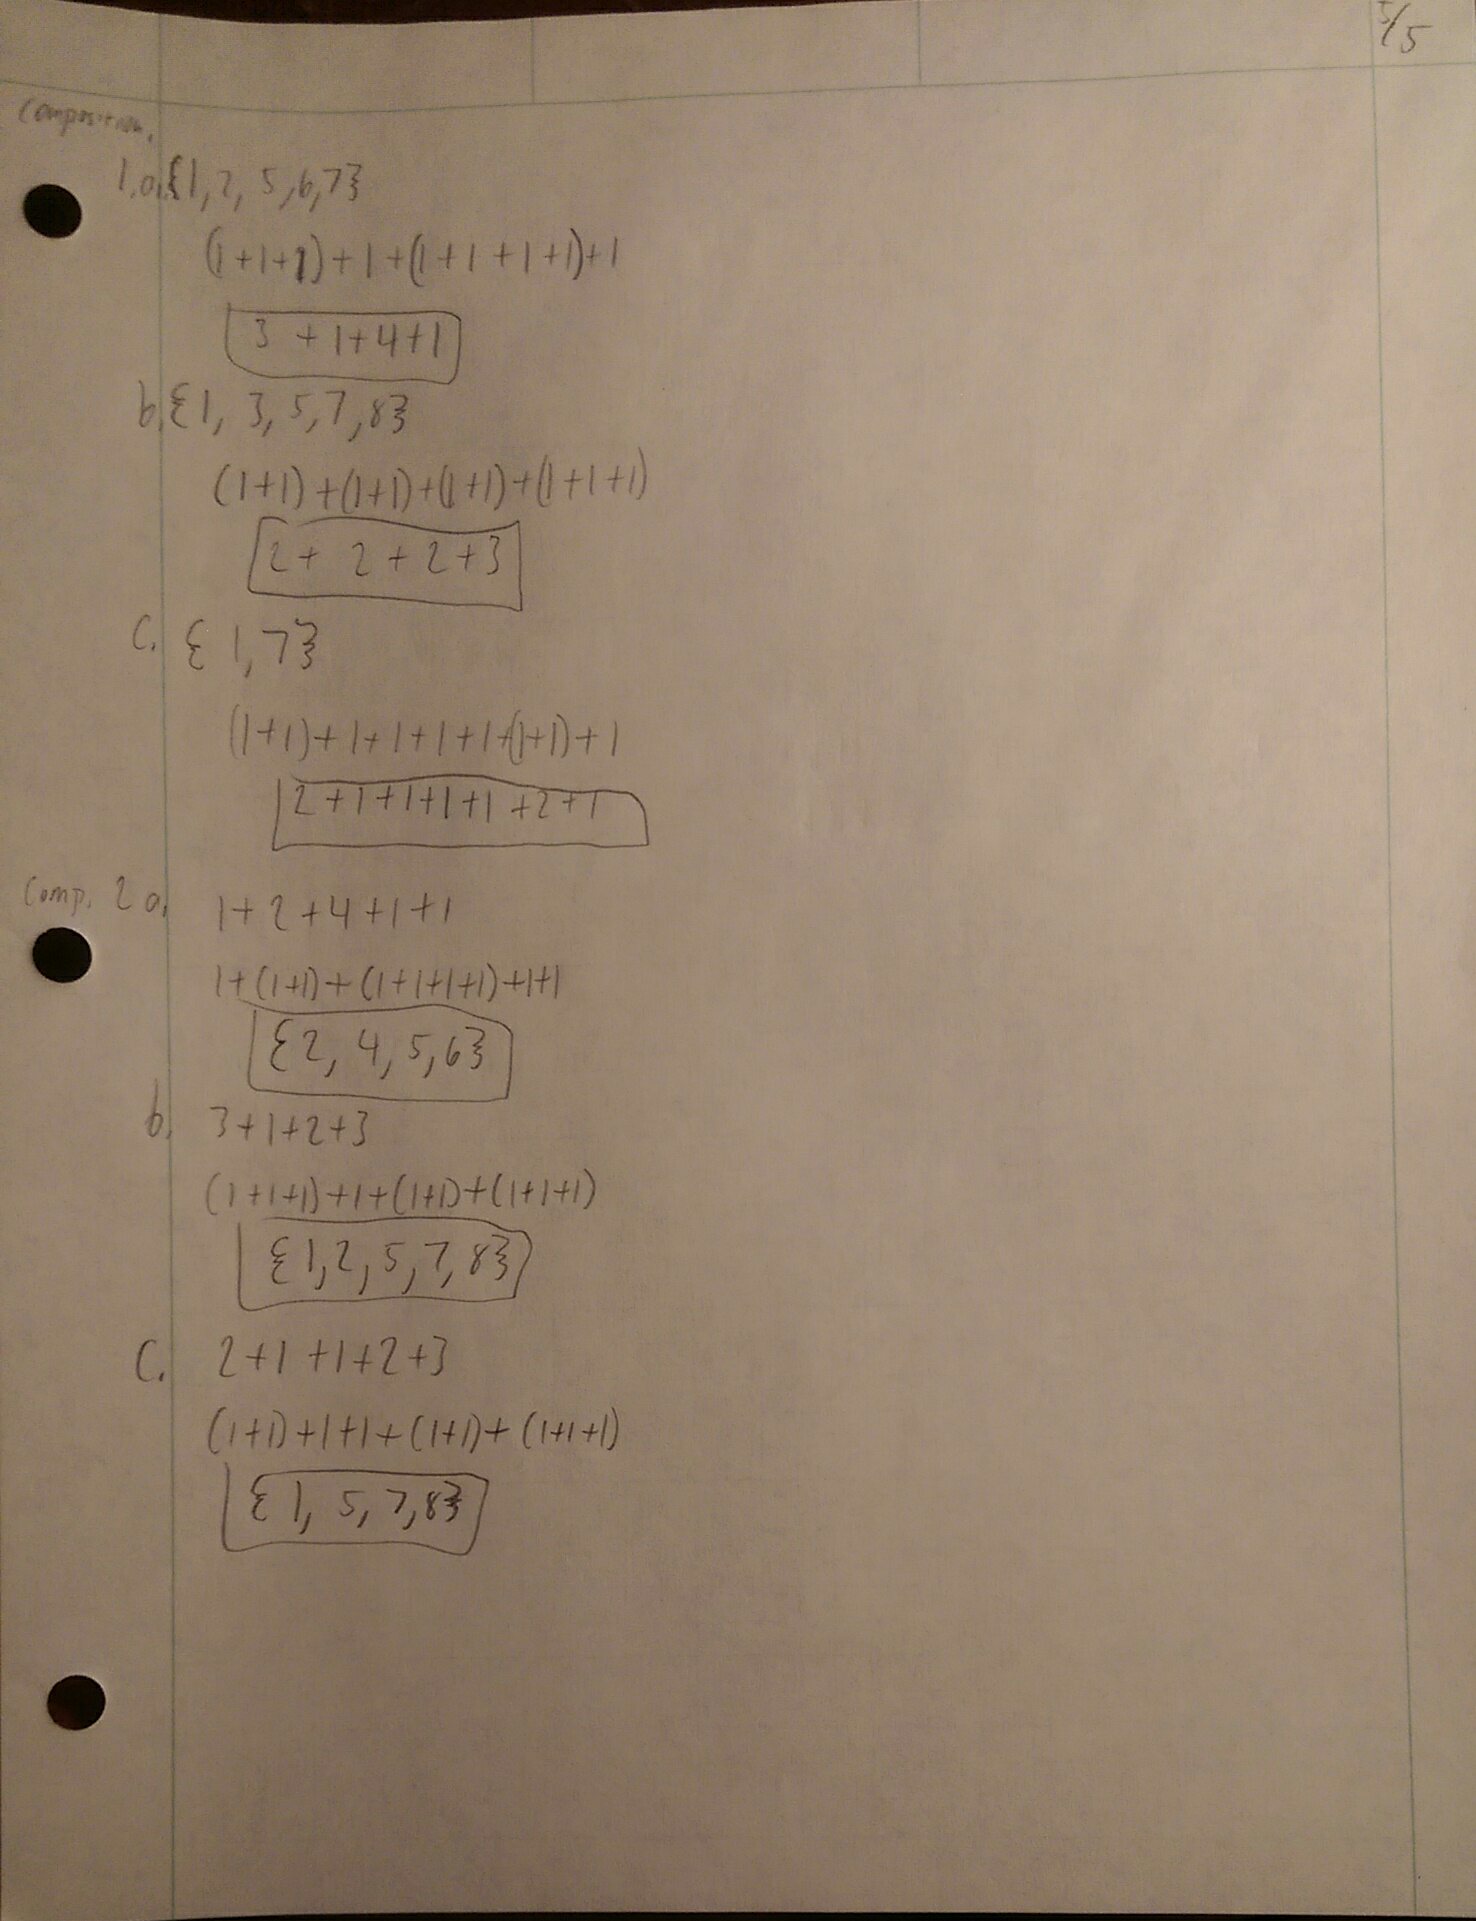 5/5
Composition.
1.a. {1, 2, 5, 6, 7}
(1+1+1)+1+(1+1+1+1)+1
3+1+4+1
b. {1, 3, 5, 7, 8}
(1+1)+(1+1)+(1+1)+(1+1+1)
2+2+2+3
c. {1, 7}
(1+1)+1+1+1+1+(1+1)+1
2+1+1+1+1+2+1
Comp. 2 a. 1+2+4+1+1
1+(1+1)+(1+1+1+1)+1+1
{2, 4, 5, 6}
b. 3+1+2+3
(1+1+1)+1+(1+1)+(1+1+1)
{1, 2, 5, 7, 8}
c. 2+1+1+2+3
(1+1)+1+1+(1+1)+(1+1+1)
{1, 5, 7, 8}